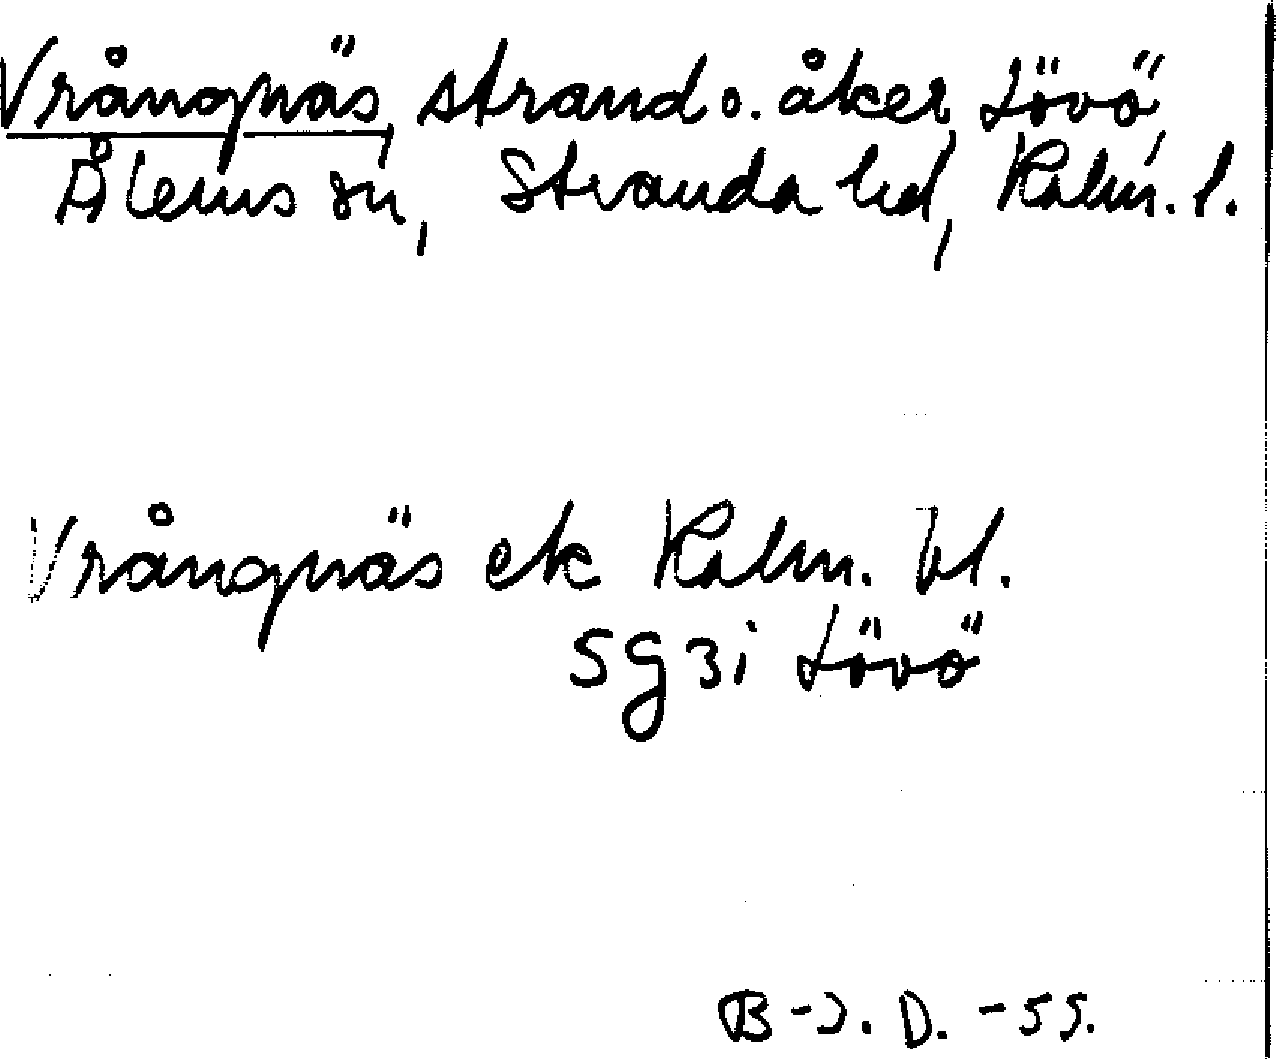 Vrångnäs, strand o. åker, Lövö,
Ålems sn, Stranda hd, Kalm. l.
Vrångnäs ek Kalm. bl.
5g3i Lövö
B-J. D. -55.